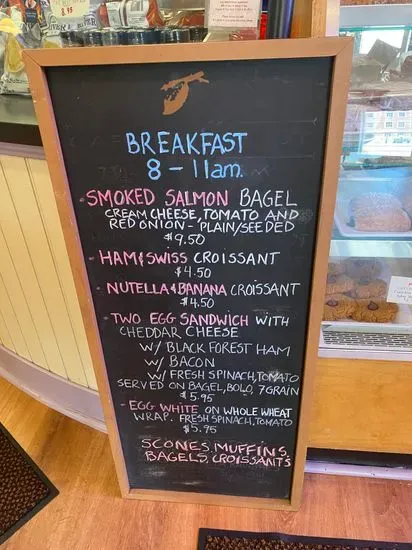 BREAKFAST
8 - 11am.
- SMOKED SALMON BAGEL
CREAM CHEESE, TOMATO AND
RED ONION - PLAIN/SEEDED
$9.50
- HAM & SWISS CROISSANT
$4.50
- NUTELLA & BANANA CROISSANT
$4.50
- TWO EGG SANDWICH WITH
CHEDDAR CHEESE
W/ BLACK FOREST HAM
W/ BACON
W/ FRESH SPINACH, TOMATO
SERVED ON BAGEL, BOLO, 7 GRAIN
$5.95
- EGG WHITE ON WHOLE WHEAT
WRAP. FRESH SPINACH, TOMATO
$5.95
SCONES, MUFFINS,
BAGELS, CROISSANTS